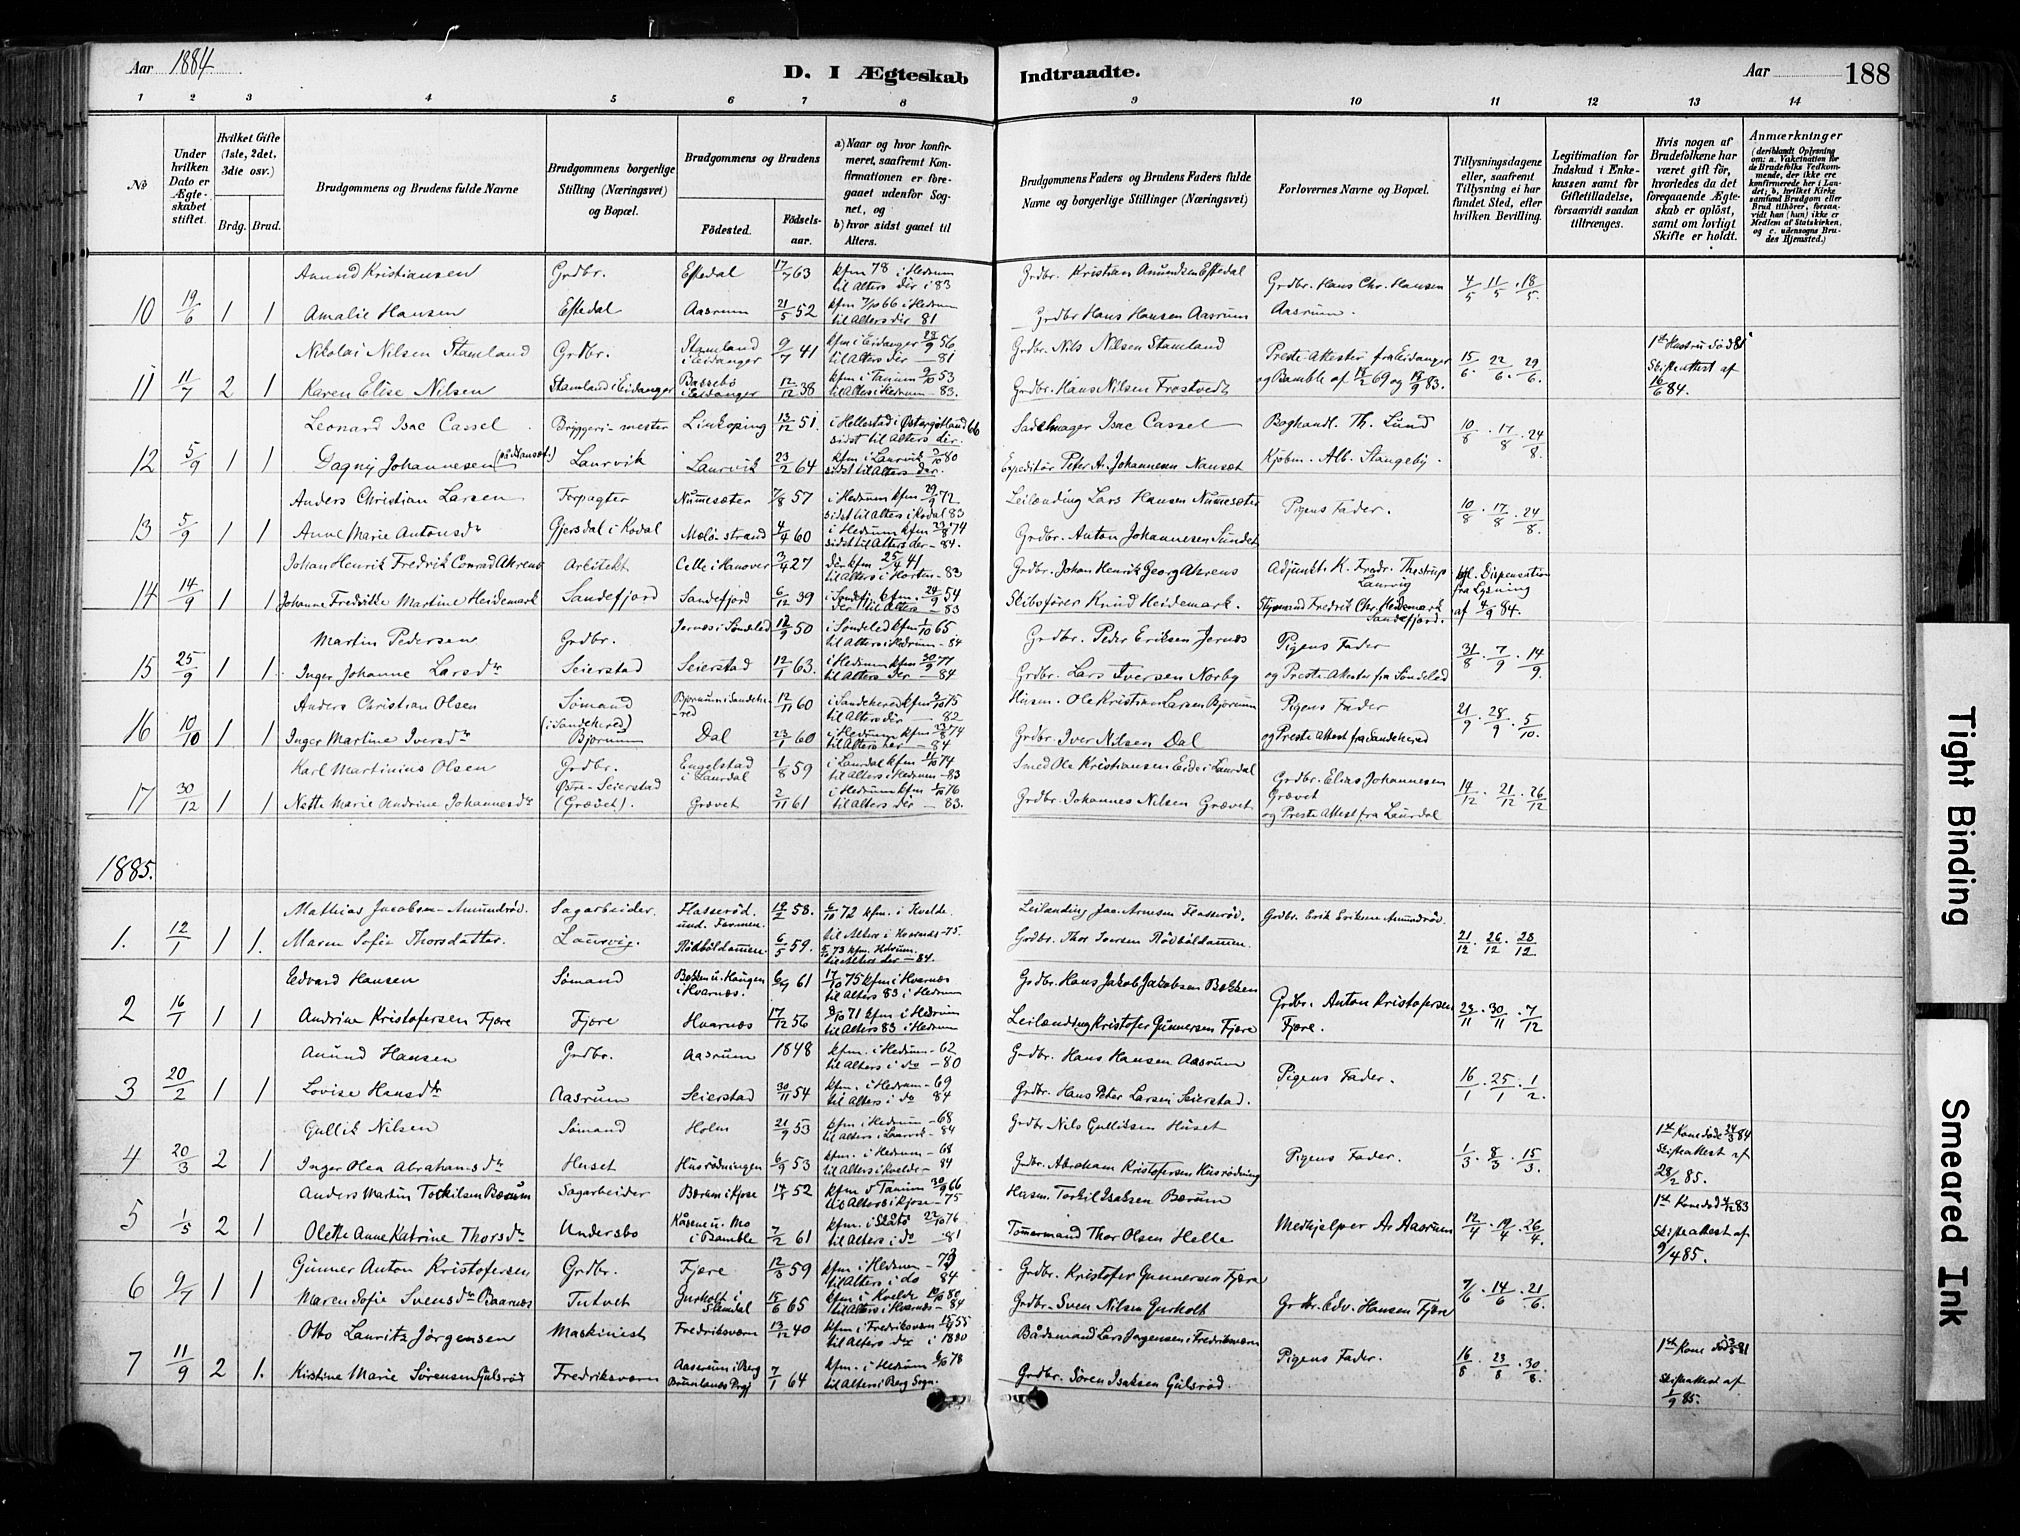 Aar 1884 D. I Ægteskab Indtraadte. Aar 188
1 2 3 4 5 6 7 8 9 10 11 12 13 14
No
Under hvilken Dato er Ægteskabet stiftet.
Hvilket Gifte (1ste, 2det, 3die osv.)
Brdg. Brud.
Brudgommens og Brudens fulde Navne
Brudgommens borgerlige Stilling (Næringsvei) og Bopæl.
Brudgommens og Brudens
Fødested. Fødselsaar.
a) Naar og hvor konfirmeret, saafremt Konfirmationen er foregaaet udenfor Sognet, og
b) hvor sidst gaaet til Alters.
Brudgommens Faders og Brudens Faders fulde Navne og borgerlige Stillinger (Næringsvei)
Forlovernes Navne og Bopæl.
Tillysningsdagene eller, saafremt Tillysning ei har fundet Sted, efter hvilken Bevilling.
Legitimation for Indskud i Enkekassen samt for Giftetilladelse, forsaavidt saadan tiltrænges.
Hvis nogen af Brudefolkene har været gift før, hvorledes da det foregaaende Ægteskab er opløst, samt om lovligt Skifte er holdt.
Anmærkninger (deriblandt Oplysning om: a. Vakcination for de Brudefolks Vedkommende, der ikke ere konfirmerede her i Landet; b. hvilket Kirkesamfund Brudgom eller Brud tilhører, forsaavidt han (hun) ikke er Medlem af Statskirken, og c. udensogns Brudes Hjemsted.)
Anund Kristiansen Grdbr. Eftedal 17/7 63 kfm 78 i Hedrum til Alters der i 83 Grdbr. Kristian Anundsen Eftedal Grdbr. Hans Chr. Hansen 4/5 11/5 18/5
10 19/6 1 1 Amalie Hansen Eftedal Aasrum 21/5 52 kfm 7/10 66 i Hedrum til Alters der 81 Grdbr Hans Hansen Aasrum Aasrum.
Nikolai Nilsen Stamland Grdbr. Stamland i Eidanger 9/7 41 kfm i Eidanger 28/9 56 til Alters der — 81 Grdbr. Nils Nilsen Stamland Preste-Attester fra Eidanger 15/6 22/6 29/6 1st Hustru død 81
11 11/7 2 1 Karen Elise Nilsen Stamland i Eidanger Bassebo i Eidanger 12/12 38 kfm i Tanum 9/10 53 til Alters i Hedrum — 83. Grdbr. Hans Nilsen Frostvedt og Bamble af 18/2 69 og 18/9 83. Skifteattest af 16/6 84.
Leonard Isac Cassel Bryggeri-mester Linköping 13/12 51 i Hellestad i Østergötland 66 sidst til Alters der. Sadelmager Isac Cassel Boghandl. Th. Lund 10/8 17/8 24/8
12 5/9 1 1 Dagny Johannesen Laurvik Laurvik 23/2 64 kfm i Laurvik 3/10 80 sidst til Alters der. Expeditør Peter A. Johannesen Nanset Kjøbm. Alb. Stangeby.
Anders Christian Larsen Forpagter Numesæter 7/8 57 i Hedrum kfm 29/9 72 sidst til Alters i Kodal 83 Leilænding Lars Hansen Numesæter Pigens Fader. 10/8 17/8 24/8
13 5/9 1 1 Anne Marie Antonsdtr Gjersdal i Kodal Melø-strand 4/4 60 i Hedrum kfm 23/8 74 sidst til Alters der — 84. Grdbr. Anton Johannesen Sundet
Johan Henrik Fredrik Conrad Ahrens Arkitekt Celle i Hanover 3/4 27 der kfm 25/4 41 til Alters i Horten — 83 Grdbr. Johan Henrik Georg Ahrens Adjunkt K. Fredr. Thestrup Laurvig kgl. Dispensation fra Lysning
14 14/9 1 1 Johanne Fredrikke Martine Heidemark Sandefjord Sandefjord 6/12 39 i Sandefj. kfm. 24/9 54 der til Alters — 83 Skibsfører Knud Heidemark. Styrmand Fredrik Chr. Heidemark Sandefjord. af 4/9 84.
Martin Pedersen Grdbr. Jernæs i Søndeled 12/9 50 i Søndeled kfm 1/10 65 til Alters i Hedrum — 84 Grdbr. Peder Eriksen Jernæs Pigens Fader 31/8 7/9 14/9
15 25/9 1 1 Inger Johanne Larsdtr Seierstad Seierstad 12/1 63. i Hedrum kfm 30/9 77 til Alters der — 84 Grdbr. Lars Iversen Norby og Preste-Attester fra Søndeled
Anders Christian Olsen Sømand Bjørnum i Sandehered 12/11 60 i Sandehered kfm 3/10 75 til Alters der — 82 Husm. Ole Kristian Larsen Bjørnum Pigens Fader 21/9 28/9 5/10
16 10/10 1 1 Inger Martine Iversdtr (i Sandehered) Bjørnum Dal 23/1 60 i Hedrum kfm 23/8 74 til Alters her — 84 Grdbr. Iver Nilsen Dal og Preste Attest fra Sandehered
Karl Martinius Olsen Grdbr. Engelstad i Laurdal 1/8 59 i Laurdal kfm 11/10 74 til Alters i Hedrum — 83 Smed Ole Kristiansen Eide i Laurdal Grdbr. Elias Johannesen 14/12 21/12 26/12
17 30/12 1 1 Nette Marie Andrine Johannesdtr Østre-Seierstad (Grøvet). Grøvet 2/11 61 i Hedrum kfm 1/10 76 til Alters der — 83. Grdbr. Johannes Nilsen Grøvet Grøvet og Preste Attest fra Laurdal
1885.
Mathias Jacobsen-Amundrød. Sagarbeider. Flatterød. 12/2 58. 6/10 72 kfm. i Kvelde. til Alters i Hvarnes -75. Leilænding Jac. Arnesen Grdbr. Erik Eriksen Amundrød
1. 12/1 1 1. Maren Sofie Thorsdatter. Laurvig. Rødbøldammen. 6/5 59. 5/10 73 kfm. Hedrum. til Alters der — 84. Grdbr. Thor Iversen Rødbøldammen. 21/12 26/12 28/12
Edvard Hansen Sømand Bekken u. Haugen i Hvarnæs. 6/9 61 17/10 75 kfm i Hvarnæs til Alters 83 i Hedrum Grdbr. Hans Jakob Jakobsen Bekken Grdbr. Anton Kristofersen
2 16/1 1 1 Andrine Kristofersen Fjære Fjære Hvarnæs 17/12 56 8/10 71 kfm i Hedrum til Alters 83 i Hedrum Leilænding Kristofer Gunnersen Fjære Fjære. 23/11 30/11 7/12
Anund Hansen Grdbr. Aasrum 1848 kfm. i Hedrum - 62 til Alters i do — 80 Grdbr. Hans Hansen Aasrum Pigens Fader.
3 20/2 1 1 Lovise Hansdtr Aasrum Seierstad 30/11 54 kfm. i Hedrum - 69 til Alters i do 84 Grdbr. Hans Peter Larsen Seierstad. 16/1 25/1 1/2
Gullik Nilsen Sømand Holm 21/9 53 kfm i Hedrum - 68 til Alters i Laurvik - 84 Grdbr Nils Gulliksen Huset 1st Kone døde 24/3 84
4 20/3 2 1 Inger Olea Abrahamsdtr Huset Husrødningen 6/9 53 kfm. i Hedrum - 68 til Alters i Kvelde - 84 Grdbr. Abraham Kristofersen Husrødning Pigens Fader. 1/3 8/3 15/3 Skifteattest af 28/2 85.
Anders Martin Torkilsen Bærum Sagarbeider Bærum i Kjose 14/1 52 kfm i Tanum 30/9 66 til Alters i Kjose - 75 Husm. Torkil Isaksen Bærum 1st Kone død 4/12 83
5 1/5 2 1 Olette Anne Katrine Thorsdtr Undersbo Kåsene u. Mo i Bamble 7/2 61 kfm. i Skåtø 22/10 76 til Alters i do — 81 Tømermand Thor Olsen Helle Medhjelper Ar. Aasrum 12/4 19/4 26/4 Skifteattest af 9/4 85.
Gunner Anton Kristofersen Grdbr. Fjære 12/3 59 kfm i Hedrum - til Alters i do 84 Grdbr. Kristofer Gunnersen Fjære
6 9/7 1 1 Maren Sofie Svensdtr Baarnæs Tutvet Gurholt i Slemdal 15/6 65 kfm i Kvelde 10/10 80 til Alters i Hvarnes - 84 Grdbr. Sven Nilsen Gurholt Grdbr. Edv. Hansen Fjære 7/6 14/6 21/6
Otto Lauritz Jørgensen Maskinist Fredriksværn 13/12 40 kfm i Fredriksværn til Alters i 1880 Bådsmand Lars Jørgensen i Fredriksværn 1st Kone død 81
7 11/9 2 1. Kirstine Marie Sørensen Gulsrød Fredriksværn Aaserum i Berg Brunlanæs Prgj 7/1 64 kfm. i Hedrum 6/10 78 til Alters i Berg Sogn. Grdbr. Søren Isaksen Gulsrød. Pigens Fader. 16/8 23/8 30/8 Skifteattest af 1/9 85.
Tight Binding
Smeared Ink